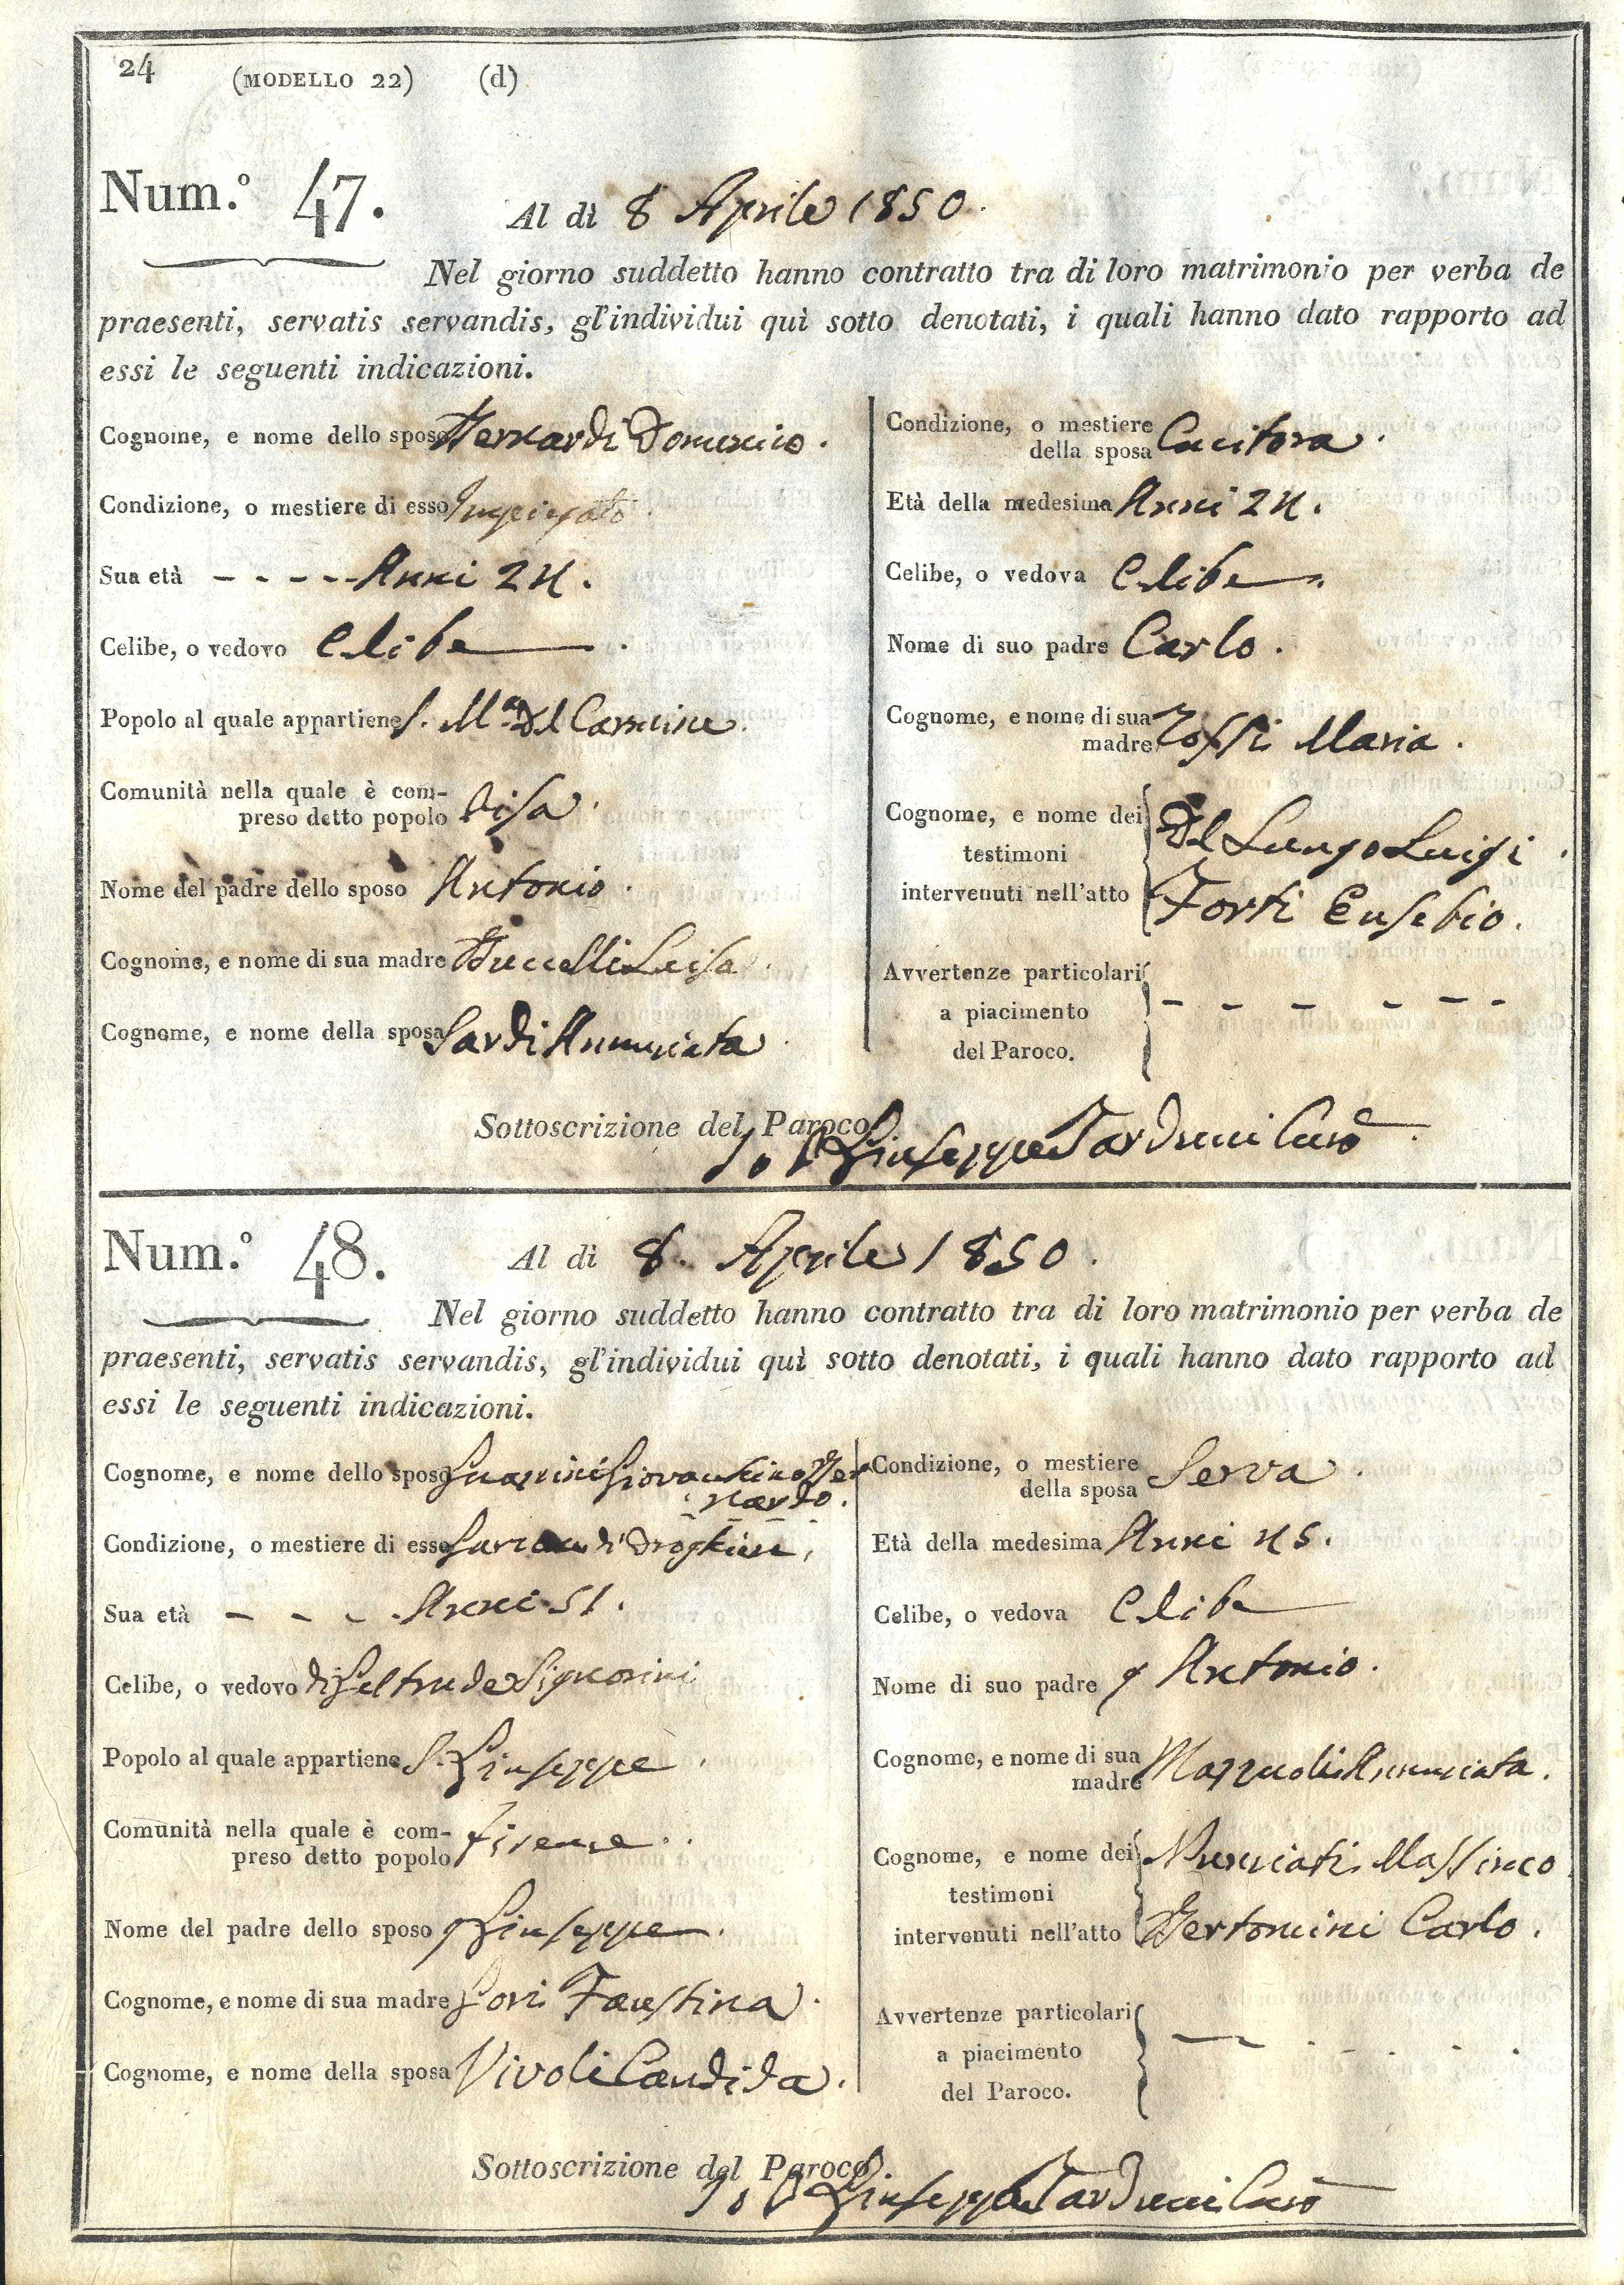 24 (MODELLO 22) (d)
Num.° 47. Al dì 8 Aprile 1850.
Nel giorno suddetto hanno contratto tra di loro matrimonio per verba de
praesenti, servatis servandis, gl'individui quì sotto denotati, i quali hanno dato rapporto ad
essi le seguenti indicazioni.
Cognome, e nome dello sposo Bernardi Domenico.
Condizione, o mestiere di esso Impiegato.
Sua età - - - - - Anni 24.
Celibe, o vedovo Celibe.
Popolo al quale appartiene S. Mª del Carmine.
Comunità nella quale è com-
preso detto popolo Pisa.
Nome del padre dello sposo Antonio.
Cognome, e nome di sua madre Buccelli Luisa.
Cognome, e nome della sposa Sardi Annunciata.
Condizione, o mestiere
della sposa Cucitora.
Età della medesima Anni 24.
Celibe, o vedova Celibe.
Nome di suo padre Carlo.
Cognome, e nome di sua
madre Zoffi Maria.
Cognome, e nome dei
testimoni
intervenuti nell'atto
Del Lungo Luigi.
Forti Eusebio.
Avvertenze particolari
a piacimento
del Paroco.
- - - - - -
Sottoscrizione del Paroco
Io P Giuseppe Tarducci Curo
Num.° 48. Al dì 8. Aprile 1850.
Nel giorno suddetto hanno contratto tra di loro matrimonio per verba de
praesenti, servatis servandis, gl'individui quì sotto denotati, i quali hanno dato rapporto ad
essi le seguenti indicazioni.
Cognome, e nome dello sposo Guarnini Giovacchino Ber
nardo.
Condizione, o mestiere di esso di Droghiere,
Sua età - - - - Anni 51.
Celibe, o vedovo di Geltrude Signorini
Popolo al quale appartiene S. Giuseppe.
Comunità nella quale è com-
preso detto popolo Firenze.
Nome del padre dello sposo q Giuseppe.
Cognome, e nome di sua madre Gori Faustina.
Cognome, e nome della sposa Vivoli Candida.
Condizione, o mestiere
della sposa Serva.
Età della medesima Anni 45.
Celibe, o vedova Celibe
Nome di suo padre q Antonio.
Cognome, e nome di sua
madre Mazzuoli Annunciata.
Cognome, e nome dei
testimoni
intervenuti nell'atto
Nunciati Massimo
Bertomini Carlo.
Avvertenze particolari
a piacimento
del Paroco.
- - - - - -
Sottoscrizione del Paroco.
Io P Giuseppe Tarducci Curo